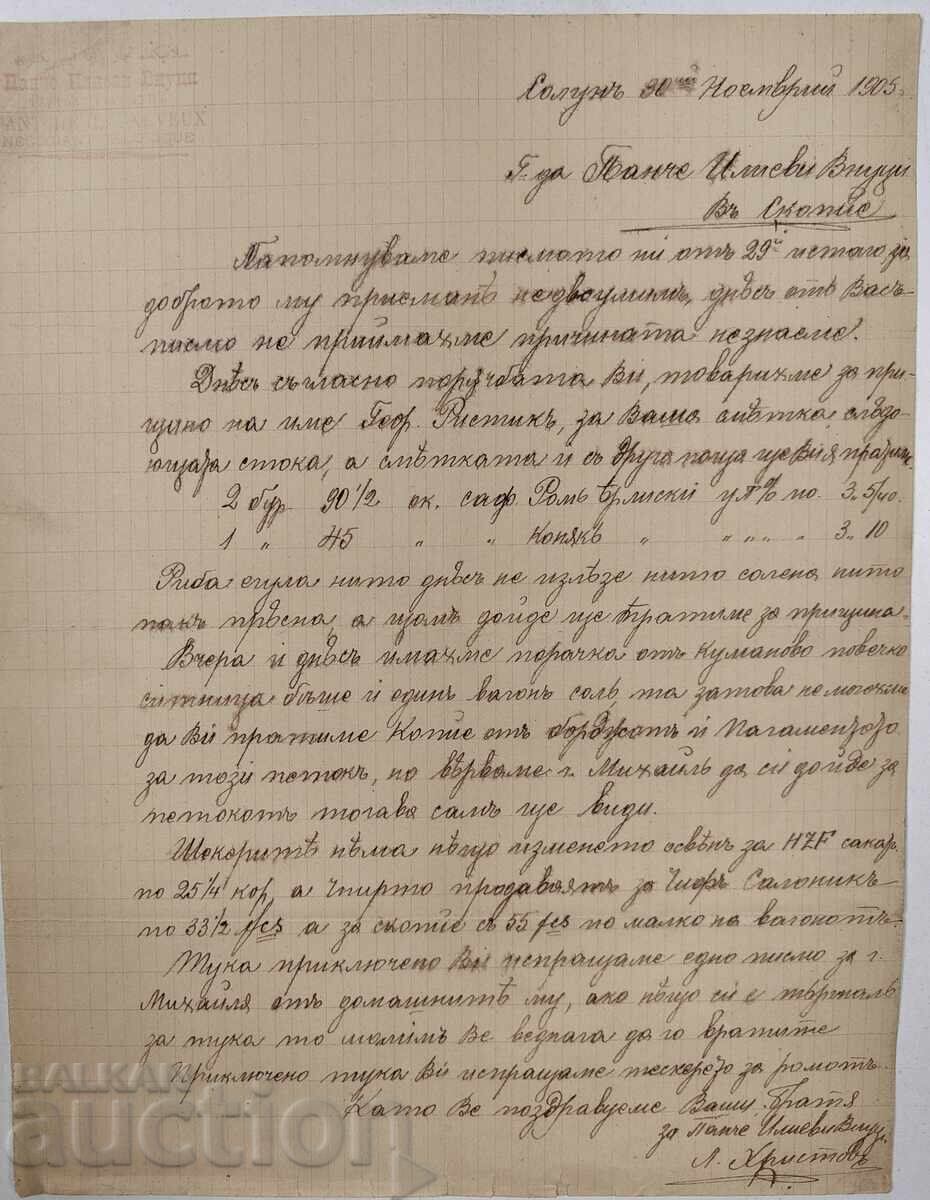 Солунъ 30ий Ноемврий 1905.
Г-да Панче Илиеви Внуци
Въ Скопие
Напомнуваме писмото ни отъ 29й истаго, за
доброто му приемане недвоумимъ, днѣсъ отъ Васъ
писмо не приймахме причината незнаеме.
Днѣсъ съгласно порѫчбата Ви, товарихме за При-
щино на име Геор. Ристикъ, за Ваша смѣтка слѣдо-
ющата стока, а смѣтката й съ друга поща ще Ви я пратим
2 бур. 90 1/2 ок. саф. Ромъ 3. 5/40.
1 " 45 " " Конякъ " " " " " 3,, 10
Риба нито днѣсъ не излѣзе нито солена нито
пакъ прѣсна, а щомъ дойде ще вратиме за Прищина.
Вчера и днѣсъ имахме порачка отъ Куманово повечко
ситница бѣше и единъ вагонъ соль, та затова неможихме
да Ви пратиме Копие отъ и
за този петокъ, но вѣрваме г. Михаилъ да си дойде за
петокотъ тогава самъ ще види.
Шекеритѣ нѣма нѣщо изменето освѣнъ за HZF сакар.
по 25 1/4 кор, а Спирто продаватъ за Салоникъ
по 33 1/2 fcs а за Скопие съ 55 fcs по малко на вагонотъ
Тука приключено Ви испращаме едно писмо за г.
Михаиля отъ домашнитѣ му, ако нѣщо си е търгналъ
за тука то молимъ Ве веднага да го вратите
Приключено тука Ви испращаме тескерето за ромотъ.
Като Ве поздравуеме Ваши братя
за Панче Илиеви Внуци
Л. Христовъ
BALKAN
auction